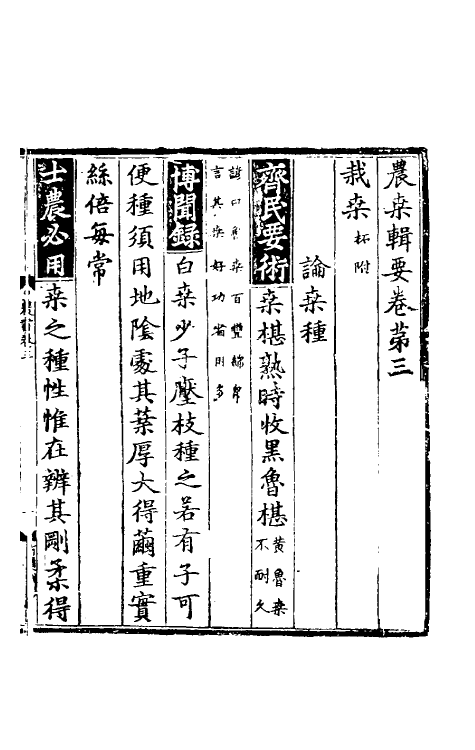 農桒輯要卷第三
栽桒 柘附
論桒種
齊民要術 桒椹熟時收黑魯椹 黃魯桒不耐久
諺曰魯桒百豐綿帛言其桒好功省用多
博聞錄 白桒少子壓枝種之若有子可
便種須用地陰處其葉厚大得繭重實
絲倍每常
士農必用 桒之種性惟在辨其剛柔得